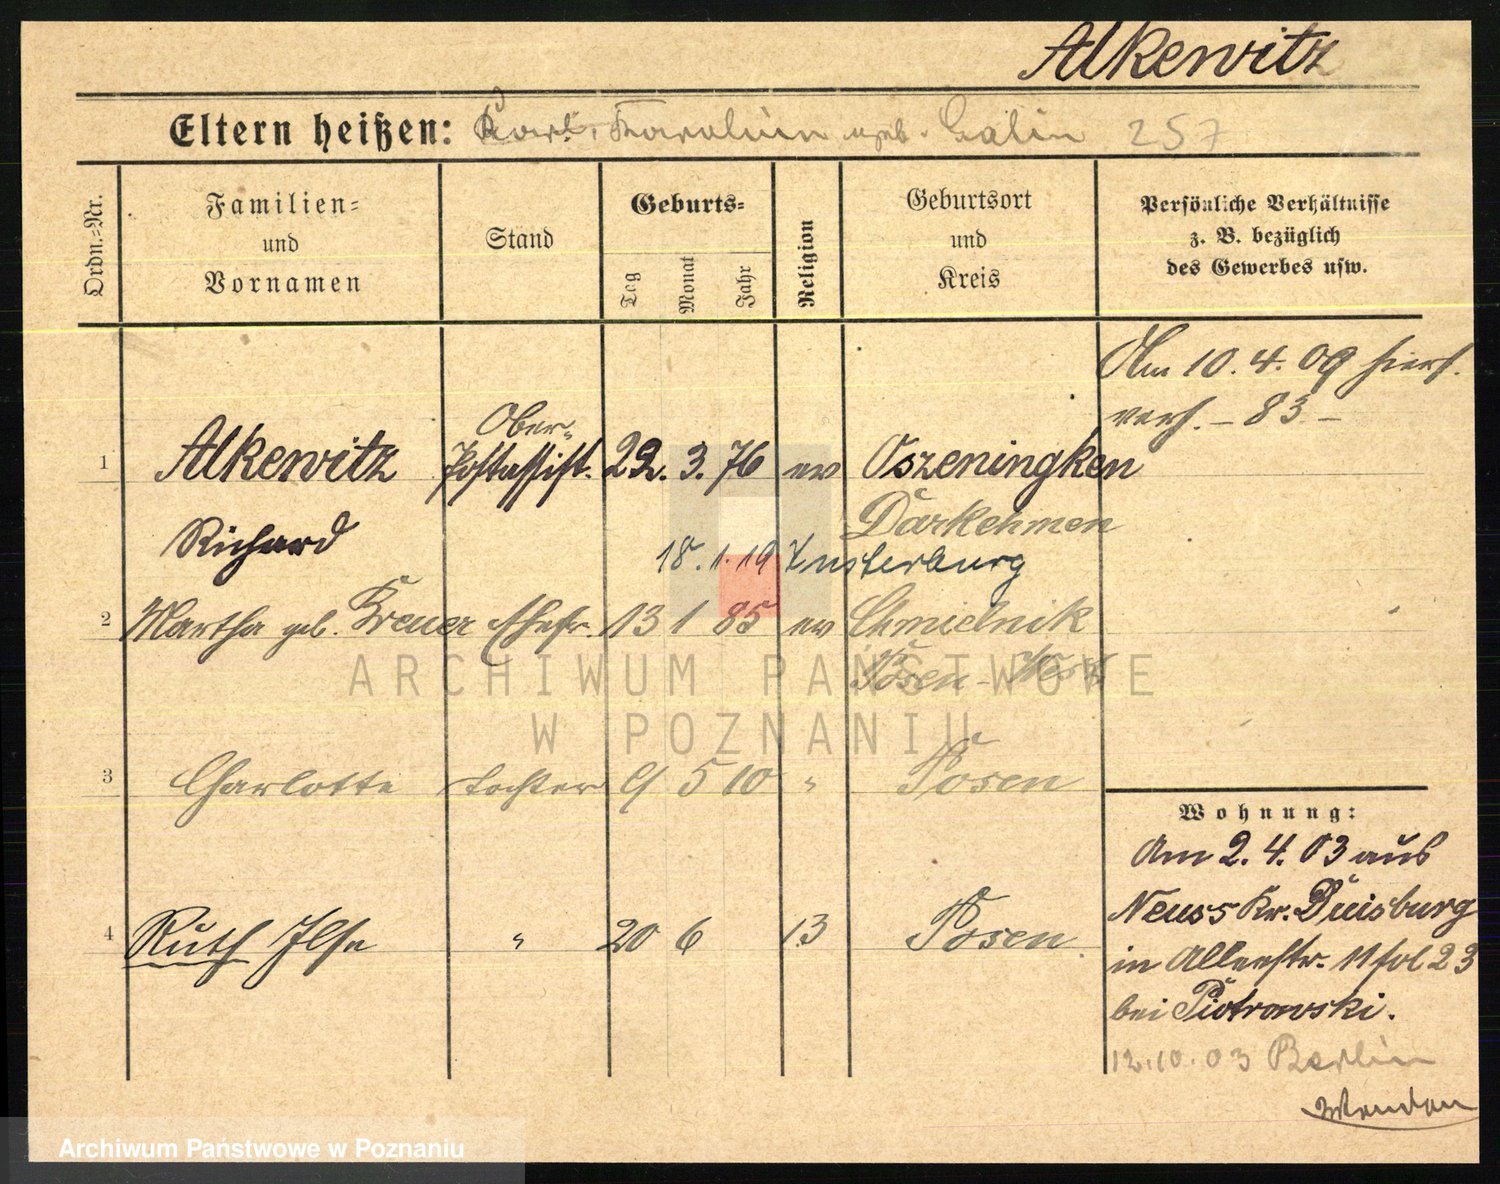 Alkewitz
Eltern heißen: Karl, Karoline geb. Galin 257
Ordn.-Nr.
Familien-
und
Vornamen
Stand
Geburts-
Tag
Monat
Jahr
Religion
Geburtsort
und
Kreis
Persönliche Verhältnisse
z. B. bezüglich
des Gewerbes usw.
Am 10.4.09 hier
verh. – 83 –
1 Alkewitz Ober-
Postassist. 22. 3. 76 ev Oszeningken
Richard Darkehmen
18. 1. 19 Insterburg
2 Martha geb. Krener Ehefr. 13 1 85 ev Chmielnik
Posen - West
3 Charlotte Tochter 9 5 10 " Posen
4 Ruth Ilse " 20 6 13 Posen
Wohnung:
Am 2.4.03 aus
Neuss Kr. Duisburg
in Allerstr. 11 fol 23
bei Piotrowski.
12.10.03 Berlin
ARCHIWUM PAŃSTWOWE
W POZNANIU
Archiwum Państwowe w Poznaniu